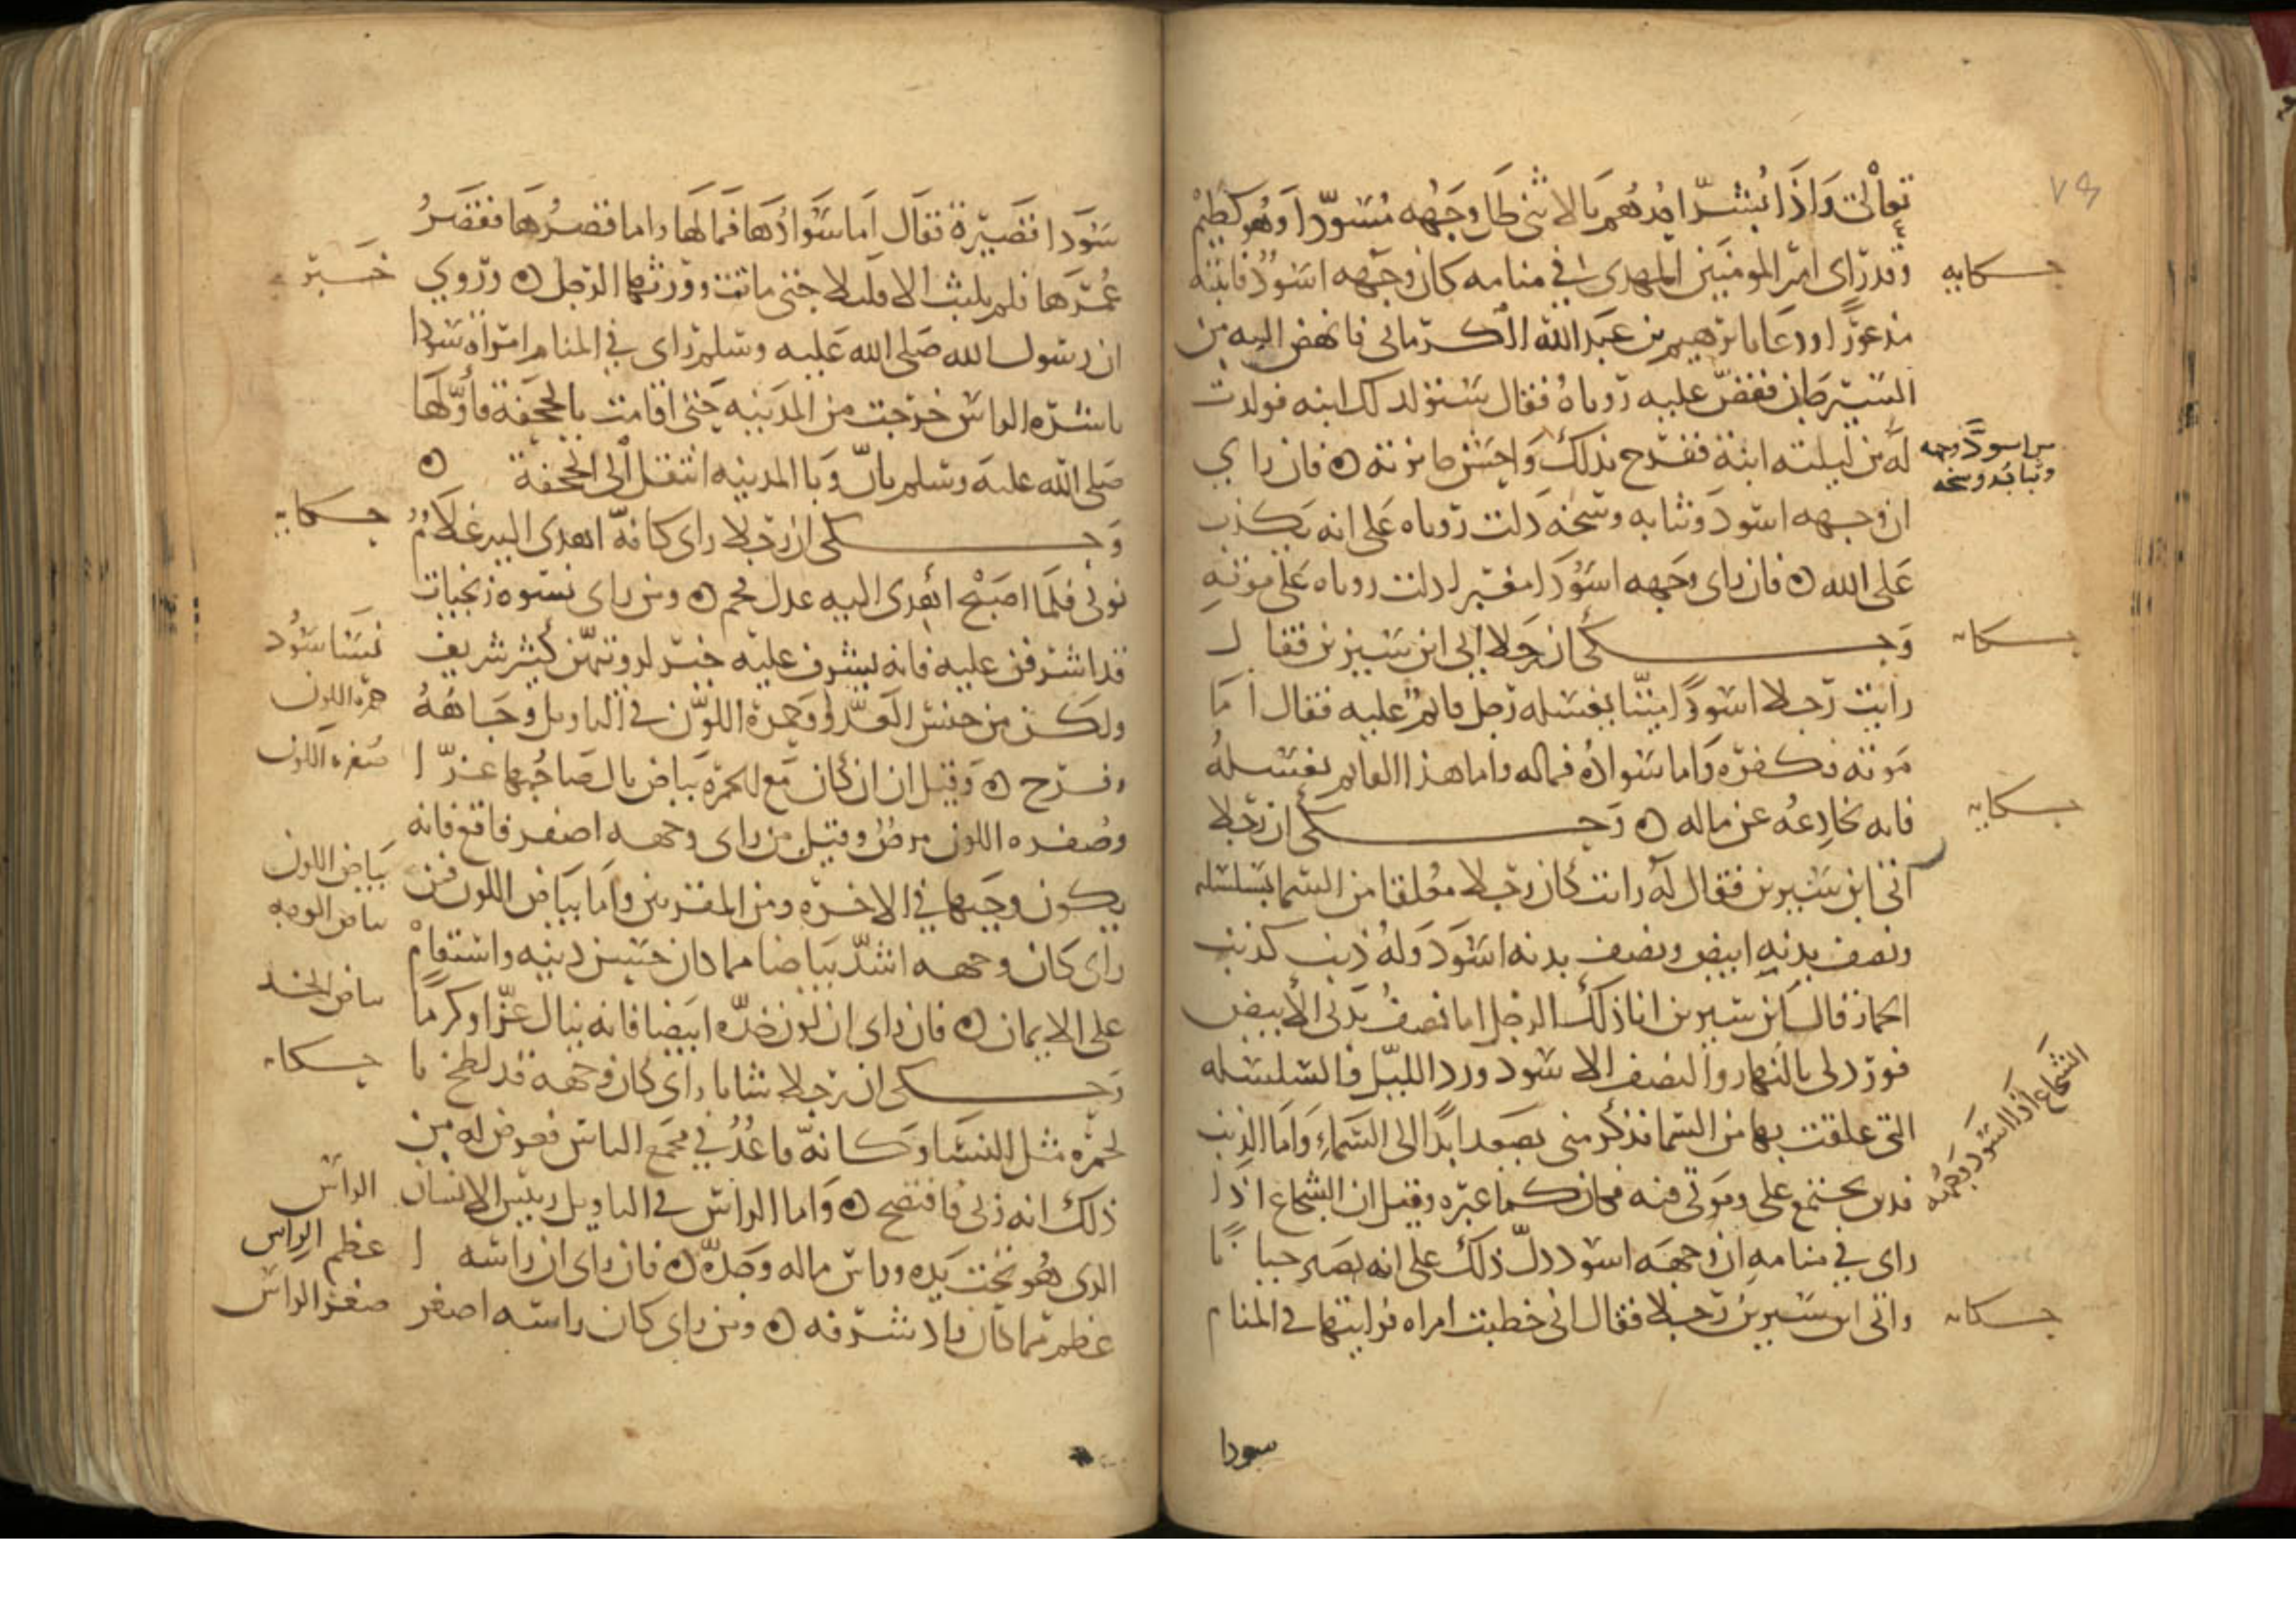 تعالى وَاِذَا بُشّرَ احدُهُم بالانثى ظل وَجهُه مُسَودّا وَهُو كظيم
وقد رأى امير المومنين المهدي في منامه كان وجهه اسود فانتبه
حكايه
مذعورا ودعا بابرهيم بن عبد الله الكرماني فانهض اليه من
السيرجان فقص عليه روياه فقال ستولد لك ابنه فولدت
له من ليلته ابنة ففرح بذلك واحسن جايزته ٥ فان راي
من اسود وجهه وثيابه وسخه
ان وجهه اسود وثيابه وسخه دلت روياه على انه يكذب
على الله ٥ فان راى وجهه اسود امغبرا دلت روياه على موته
وحكى ان رجلا اتى ابن سيرين فقال
حكايه
رايت رجلا اسود ميتا يغسله رجل قايم عليه فقال اما
موته فكفره واما سواده فماله واما هذا القايم يغسله
فانه يخادعه عن ماله ٥ وحكى ان رجلا
حكايه
اتى ابن سيرين فقال له رايت كان رجلا معلقا من السما بسلسله
ونصف بدنه ابيض ونصف بدنه اسود وله ذنب كذنب
الحمار قال ابن سيرين انا ذلك الرجل اما نصف بدني الابيض
فورد لي بالنهار والنصف الاسود ورد الليل والسلسله
التي علقت بها من السما فذكر مني يصعد ابدا الى السماء واما الذنب
فدين يجتمع علي وموتي فيه فكان كما عبره وقيل ان الشجاع اذا
الشجاع اذا اسود وجهه
راى في منامه ان وجهه اسود دل ذلك على انه يصير جبانا
واتى ابن سيرين رجلا فقال اني خطبت امراه فرايتها في المنام
حكايه
سودا
سودا قصيرة فقال اما سوادها فمالها واما قصرها فقصر
عمرها فلم يلبث الا قليلا حتى ماتت وورثها الرجل ٥ وروي
خبر
ان رسول الله صلى الله عليه وسلم راى في المنام امراه سودا
ناشره الراس خرجت من المدينه حتى اقامت بالجحفة فأولها
صلى الله عليه وسلم بان وبا المدينه انتقل الى الجحفة ٥
وحكى ان رجلا راى كانه اهدى اليه غلام
حكايه
نوبي فلما اصبح اهدي اليه عدل فحم ٥ ومن راى نسوه زنجيات
قد اشرفن عليه فانه يشرف عليه خير لرويتهن كثير شريف
نسا سود
ولكن من جنس العدو وحمرة اللون في التاويل وجاهه
حمره اللون
وفرح ٥ وقيل ان ان كان مع الحمره بياض نال صاحبها عزا
وصفره اللون مرض وقيل من راى وجهه اصفر فاقع فانه
صفره اللون
يكون وجيها في الاخره ومن المقربين واما بياض اللون فمن
بياض اللون
راى كان وجهه اشد بياضا مما كان حسن دينه واستقام
بياض الوجه
على الايمان ٥ فان راى ان لون خده ابيضا فانه ينال عزا وكرما
بياض الخد
وحكى ان رجلا شابا راى كان وجهه قد لطخ با
حكايه
لحمره مثل النسا وكانه قاعد في مجمع الناس فعرض له من
ذلك انه زنى فافتضح ٥ واما الراس في التاويل رييس الانسان
الراس
الذي هو تحت يده وراس ماله وجده ٥ فان راى ان راسه ا
عظم الراس
عظم مما كان زاد شرفه ٥ ومن راى كان راسه اصغر
صغر الراس